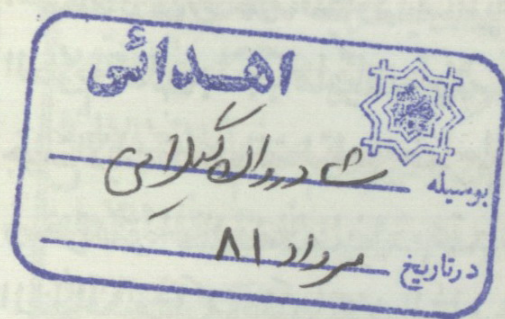 اهدائی
بوسیله شادروان گیلانی
در تاریخ مرداد ۸۱